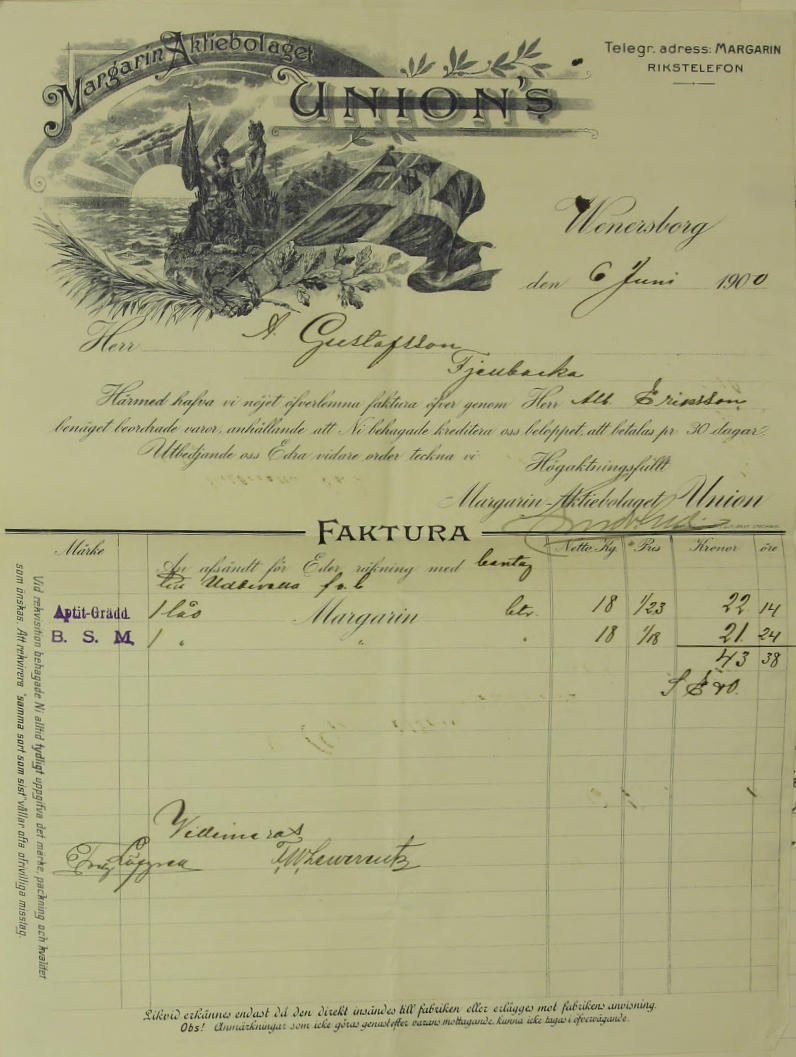 Margarin Aktiebolaget
UNION'S
Telegr. adress: MARGARIN
RIKSTELEFON
Wenersborg
den 6 Juni 1900
Herr A. Gustafsson
Fjellbacka
Härmed hafva vi nöjet öfverlemna faktura öfver genom Herr Alb. Eriksson
benäget beordrade varor, anhållande att Ni behagade kreditera oss beloppet, att betalas pr 30 dagar.
Utbedjande oss Edra vidare order teckna vi
Högaktningsfullt
Margarin-Aktiebolaget Union
FAKTURA
Märke Netto Kg. Pris Kronor öre
An afsändt för Eder räkning med
Uddevalla f.o.b
Aptit-Grädd. 1 Margarin btr. 18 1/23 22 14
B. S. M. 1 " " " 18 1/18 21 24
43 38
S. E. & O.
Vidimeras
Löfgren
Vid rekvisition behagade Ni alltid tydligt uppgifva det märke, packning och kvalitet
som önskas. Att rekvirera "samma sort som sist" vållar ofta ofrivilliga misstag.
Likvid erkännes endast då den direkt insändes till fabriken eller erlägges mot fabrikens anvisning.
Obs! Anmärkningar som icke göras genast efter varans mottagande, kunna icke tagas i öfvervägande.